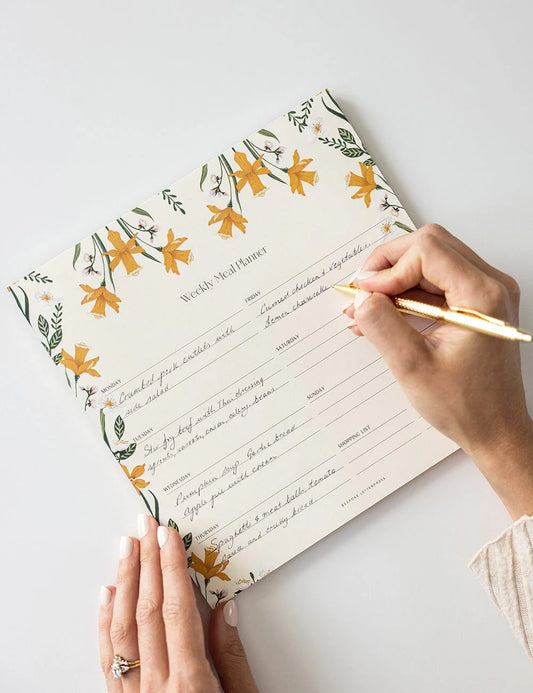 Weekly Meal Planner
MONDAY
Crumbed pork cutlets with
side salad
TUESDAY
Stir fry beef with Thai dressing
sprouts, carrots, onion, celery, beans
WEDNESDAY
Pumpkin soup Garlic bread
Apple pie with cream
THURSDAY
Spaghetti & meat balls, tomato
and crusty bread
FRIDAY
Curried chicken & vegetables
Lemon cheesecake
SATURDAY
SUNDAY
SHOPPING LIST
BESPOKE LETTERPRESS